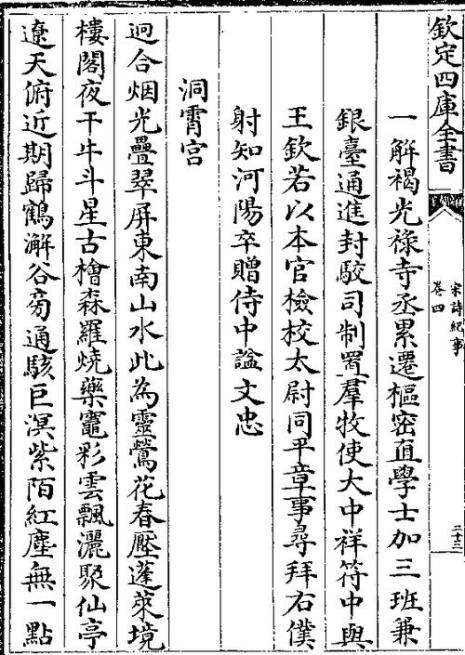 欽定四庫全書
宋詩紀事
卷四
二十三
一解褐光祿寺丞累遷樞密直學士加三班兼
銀臺通進封駁司制置羣牧使大中祥符中與
王欽若以本官檢校太尉同平章事尋拜右僕
射知河陽卒贈侍中諡文忠
洞霄宫
迥合烟光疊翠屏東南山水此為靈鶯花春壓蓬萊境
樓閣夜干牛斗星古檜森羅燒藥竈彩雲飄灑聚仙亭
遼天俯近期歸鶴澥谷旁通駭巨溟紫陌紅塵無一點